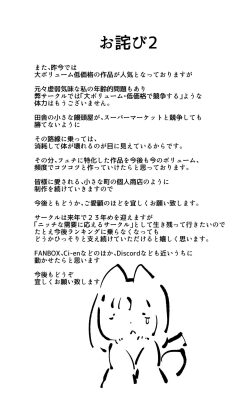 お詫び2
また、昨今では
大ボリューム低価格の作品が人気となっておりますが
元々虚弱気味な私の年齢的問題もあり
弊サークルでは「大ボリューム・低価格で競争する」ような
体力はもうございません。
田舎の小さな饅頭屋が、スーパーマーケットと競争しても
勝てないように
その路線に乗っては、
消耗して体が壊れるのが目に見えているからです。
その分、フェチに特化した作品を今後も今のボリューム、
頻度でコツコツと作っていけたらと思っております。
皆様に愛される、小さな町の個人商店のように
制作を続けていきますので
今後ともどうか、ご愛顧のほどを宜しくお願い致します。
サークルは来年で23年めを迎えますが
「ニッチな需要に応えるサークル」として生き残って行きたいので
たとえ今後ランキングに乗らなくなっても
どうかひっそりと支え続けていただけると嬉しく思います。
FANBOX、Ci-enなどのほか、Discordなども近いうちに
動かせたらと思います
今後もどうぞ
宜しくお願い致します